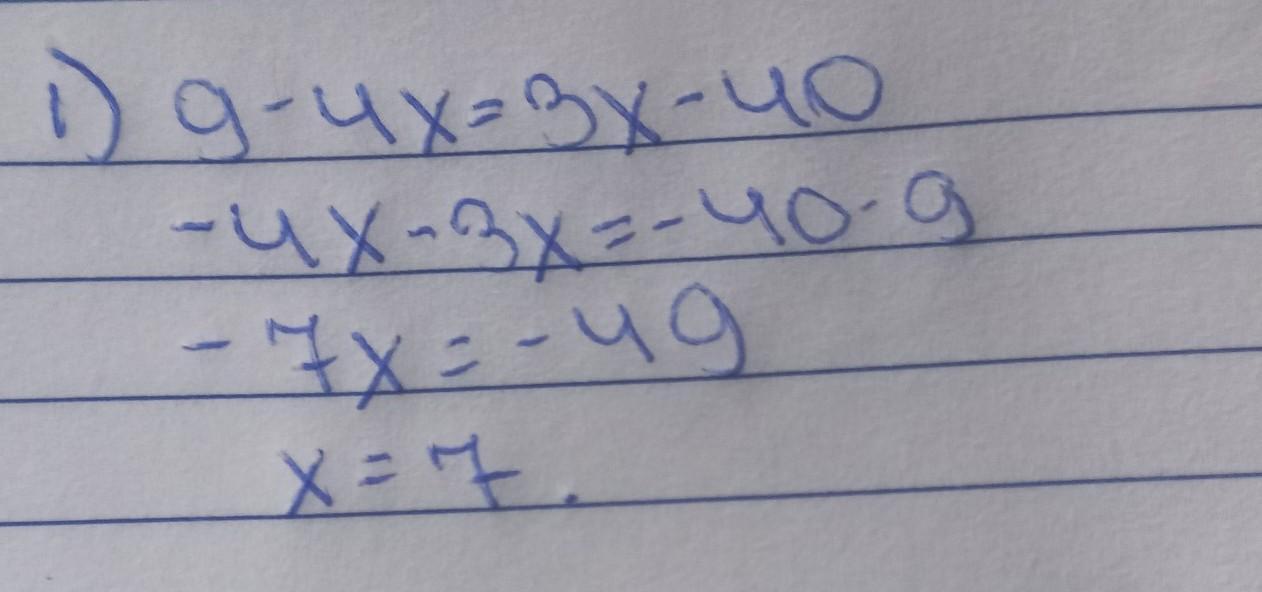 1) 9-4x=3x-40
-4x-3x=-40-9
-7x=-49
x=7.